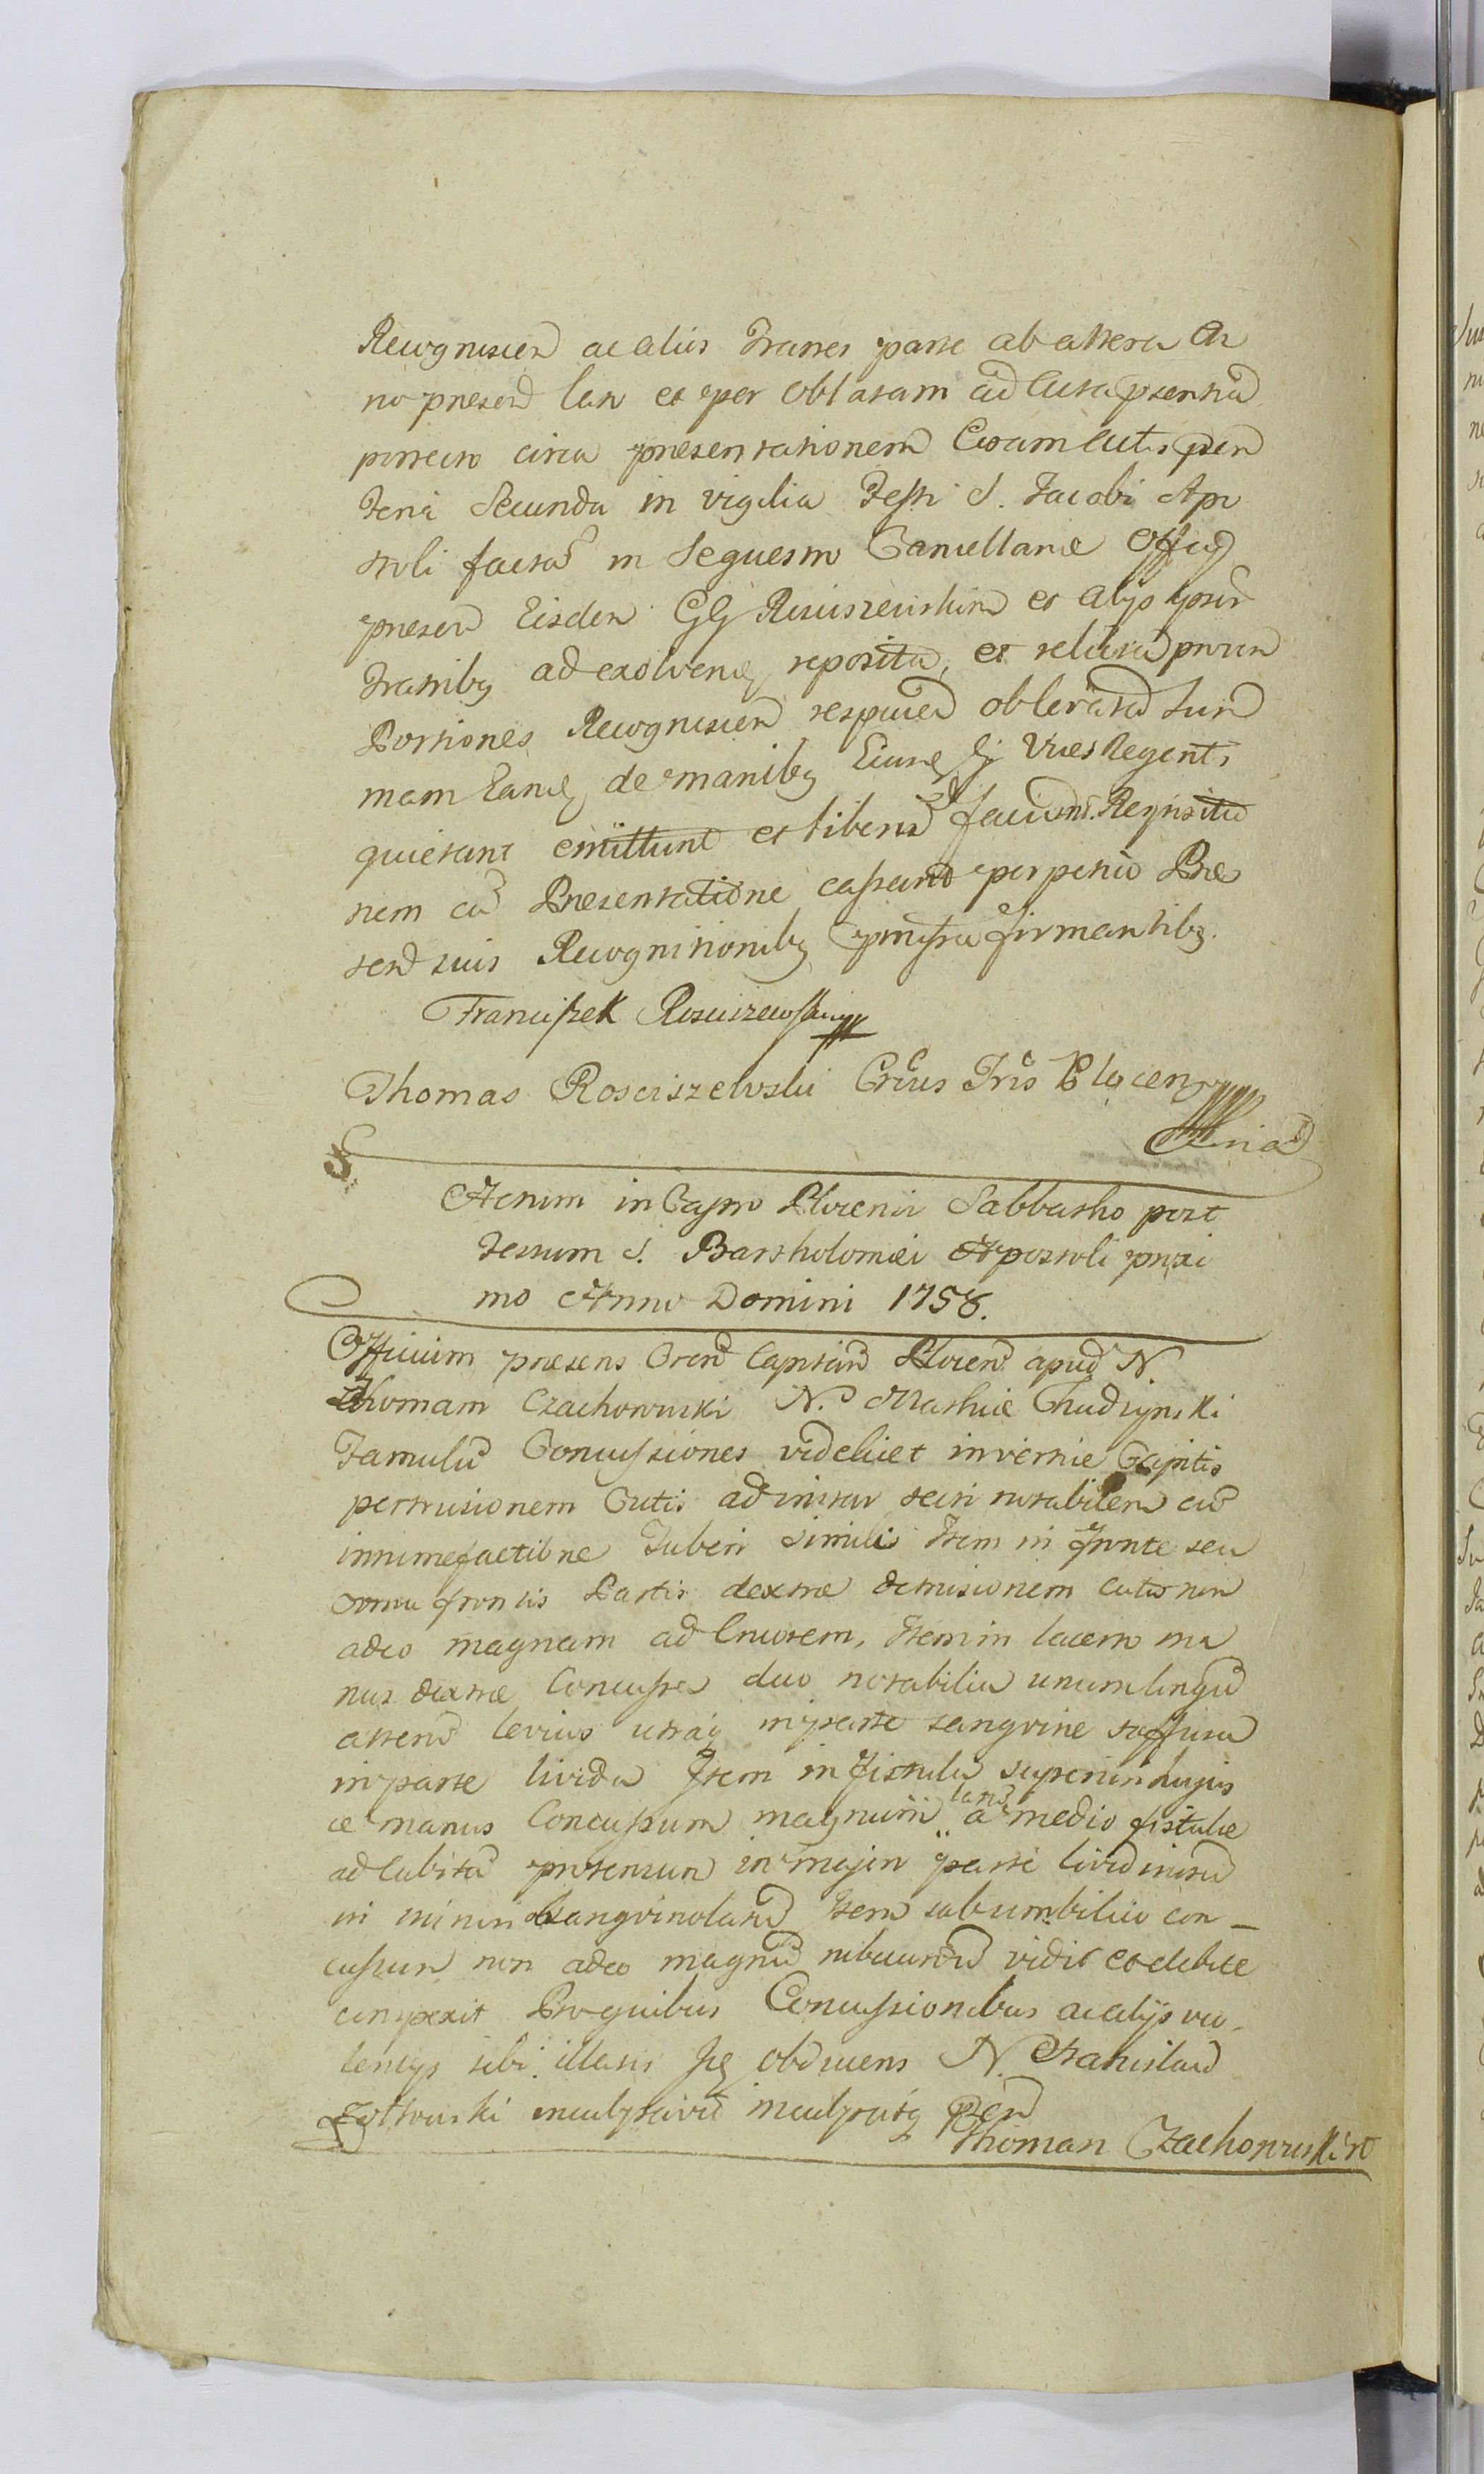 Recognoscen ac alios Fratres parte ab altera An
no presen lato et per Oblatam ad Acta presentia
porrecto circa presentationem Coram Actis pren
Feria Secunda in vigilia Festi S. Jacobi Apo
stoli factam in Sequestro Cancellariæ Officij
presen Eisdem GG Rosciszewskim et alijs ipsor
Fratribq ad exolvend reposita, et relicta
Portiones Recognoscen respicien oblevata Sum
mam Eandq de manibq Eiusdq Vices Regent
quietant emittunt et liberum faciunt. Requisitio
nem cum Presentatione cassant perpetuo Præ
sen suis Recognitionibq præmissa firmantibq.
Franciszek Rosciszewski
Thomas Rosciszewski Crius Tris Plocen
Actum in Castro Plocensi Sabbatho post
Festum S. Bartholomæi Apostoli proxi
mo Anno Domini 1758.
Officium presens Cren Capitan Plocen apud N.
Thomam Czachorowski N. Mathiæ Chudzynski
Famulum Concussiones videlicet in vertice Capitis
pertrusionem Cutis ad instar secti notabilem cum
intumefactione Tuberi simili Item in fronte seu
cornu frontis Partis dextræ detrusionem cutis non
adeo magnam ad Cruorem, Item in lacerto ma
nus dextræ Concussa duo notabilia unum longum
alterum levius utraq in parte sangvine suffusa
in parte livida Item in fistula superiori hujus
ce manus Concussum magnum latum a medio fistulæ
ad Cubitum protensum in majori parte livid
in minori sangvinolatum Item sub umbilico con-
cussum non adeo magnum rubicundum vidit et debite
conspexit Pro quibus Concussionibus ac alijs vio-
lentijs sibi illatis Hq obducens N. Stanislaum
Zoltowski inculpavit inculpatq Pren
Thoman Czachorowski